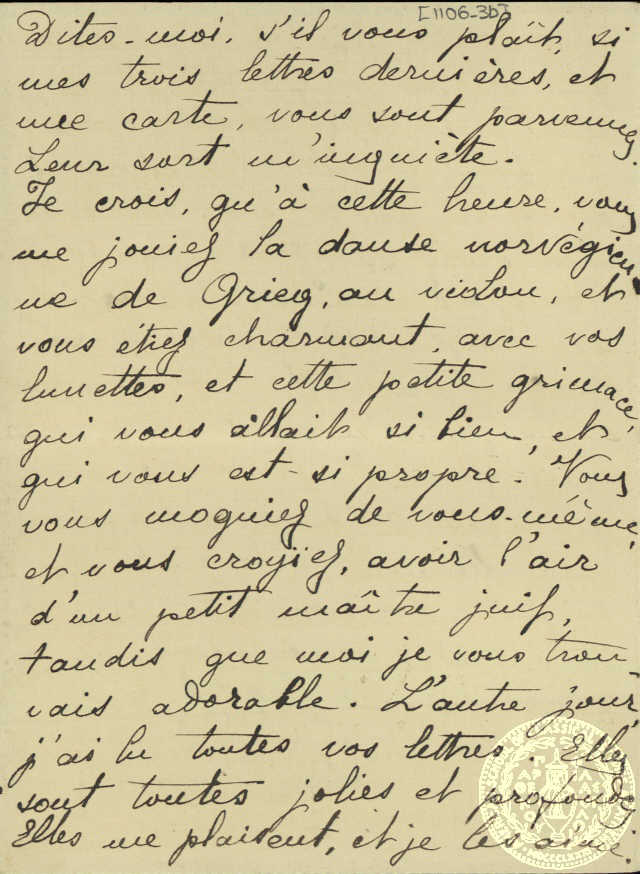 [1106-3b]
Dites-moi, s'il vous plaît, si
mes trois lettres dernières, et
une carte, vous sont parvenues.
Leur sort m'inquiète.
Je crois, qu'à cette heure, vous
me jouiez la danse norvégien
ne de Grieg, au violon, et
vous étiez charmant, avec vos
lunettes, et cette petite grimace,
qui vous allait si bien, et
qui vous est si propre. Vous
vous moquiez de vous-même,
et vous croyïez, avoir l'air
d'un petit maître juif,
tandis que moi je vous trou
vais adorable. L'autre jour,
j'ai lu toutes vos lettres. Elles
sont toutes jolies et profondes
Elles me plaisent, et je les aime.